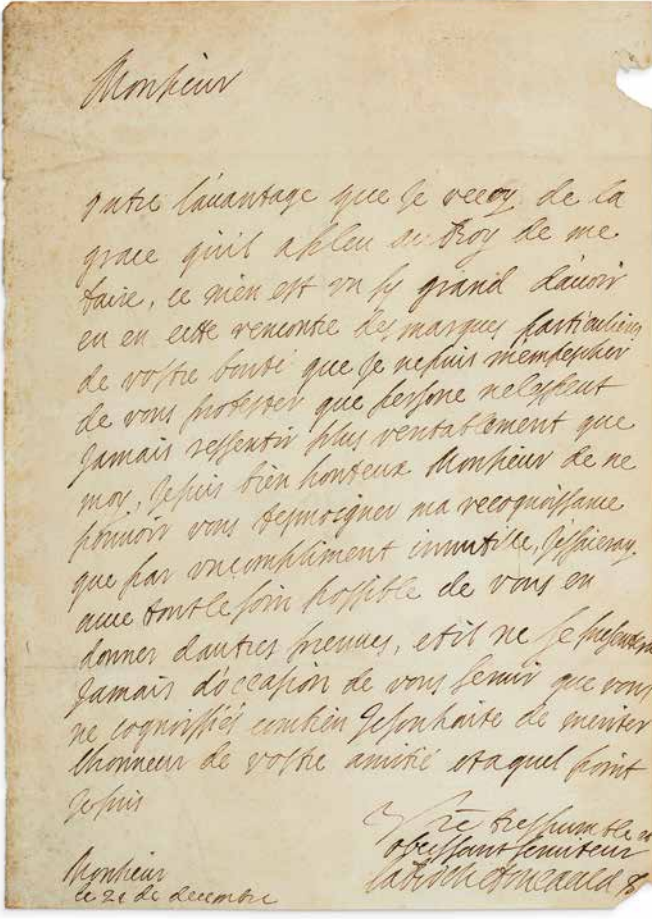 Monsieur
outre lauantage que je recoy de la
grace quil a pleu au Roy de me
faire, ce m'en est vn sy grand dauoir
eu en cette rencontre des marques particulieres
de vostre bonté que je ne puis m'empescher
de vous protester que persone ne les peut
jamais ressentir plus veritablement que
moy, je suis bien honteux Monsieur de ne
pouuoir vous tesmoigner ma recognoissance
que par vn compliment innutille, jessaieray
auec tout le soin possible de vous en
donner dautres preuues, et il ne se presentera
jamais d'occasion de vous seruir que vous
ne cognoissiés combien je souhaite de meriter
lhonneur de vostre amitié et a quel point
je suis
Vre tres humble et
obeissant seruiteur
Larochefoucauld
Monsieur
ce 21 de decembre